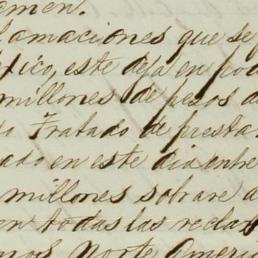 emen.
lamaciones que se
éxico, este deja en pod
millones de pesos de
Tratado de presta
ado en este dia entre
millones sobrare a
en todas las recla
Norte Ameri